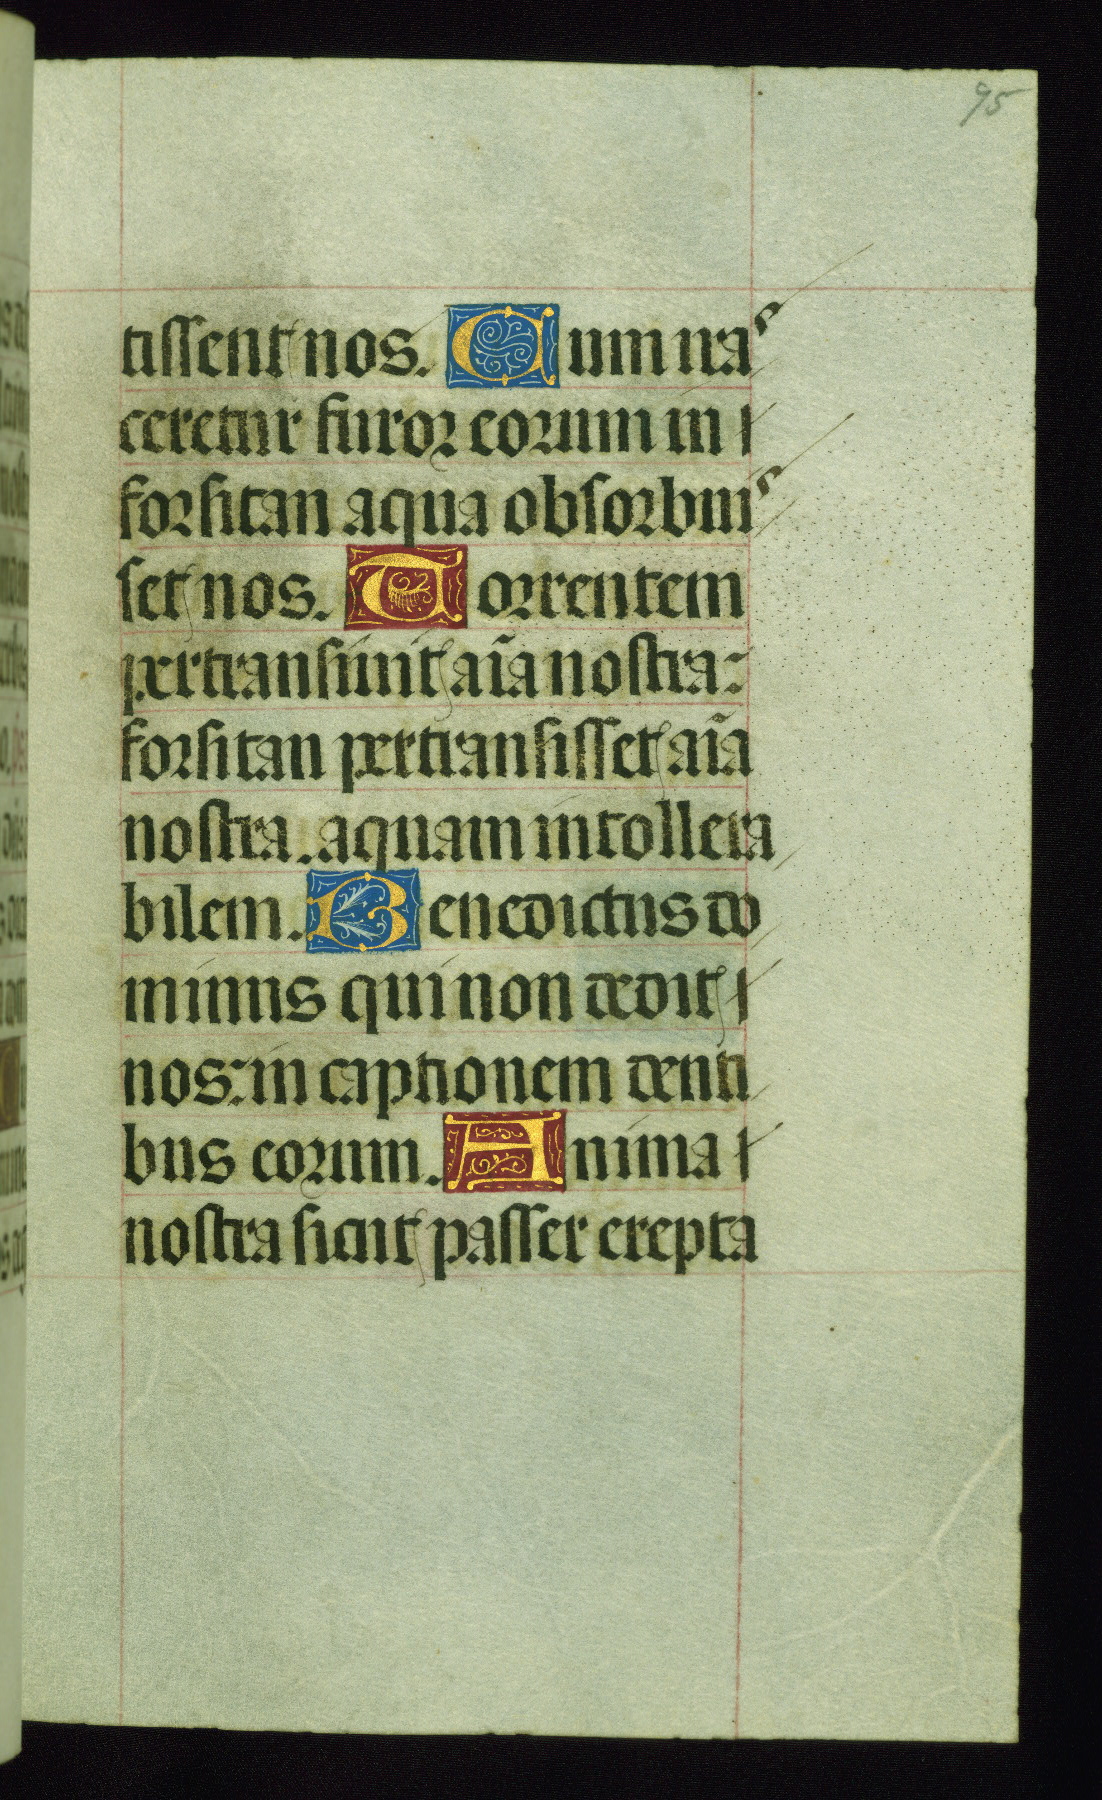 95
tissent nos. Cum iras
ceretur furor eorum in
forsitan aqua obsorbuis
set nos. Torrentem
pertransiuit aīa nostra:
forsitan pertransisset aīa
nostra. aquam intollera
bilem. Benedictus do
minus qui non dedit
nos: in captionem denti
bus eorum. Anima
nostra sicut passer erepta